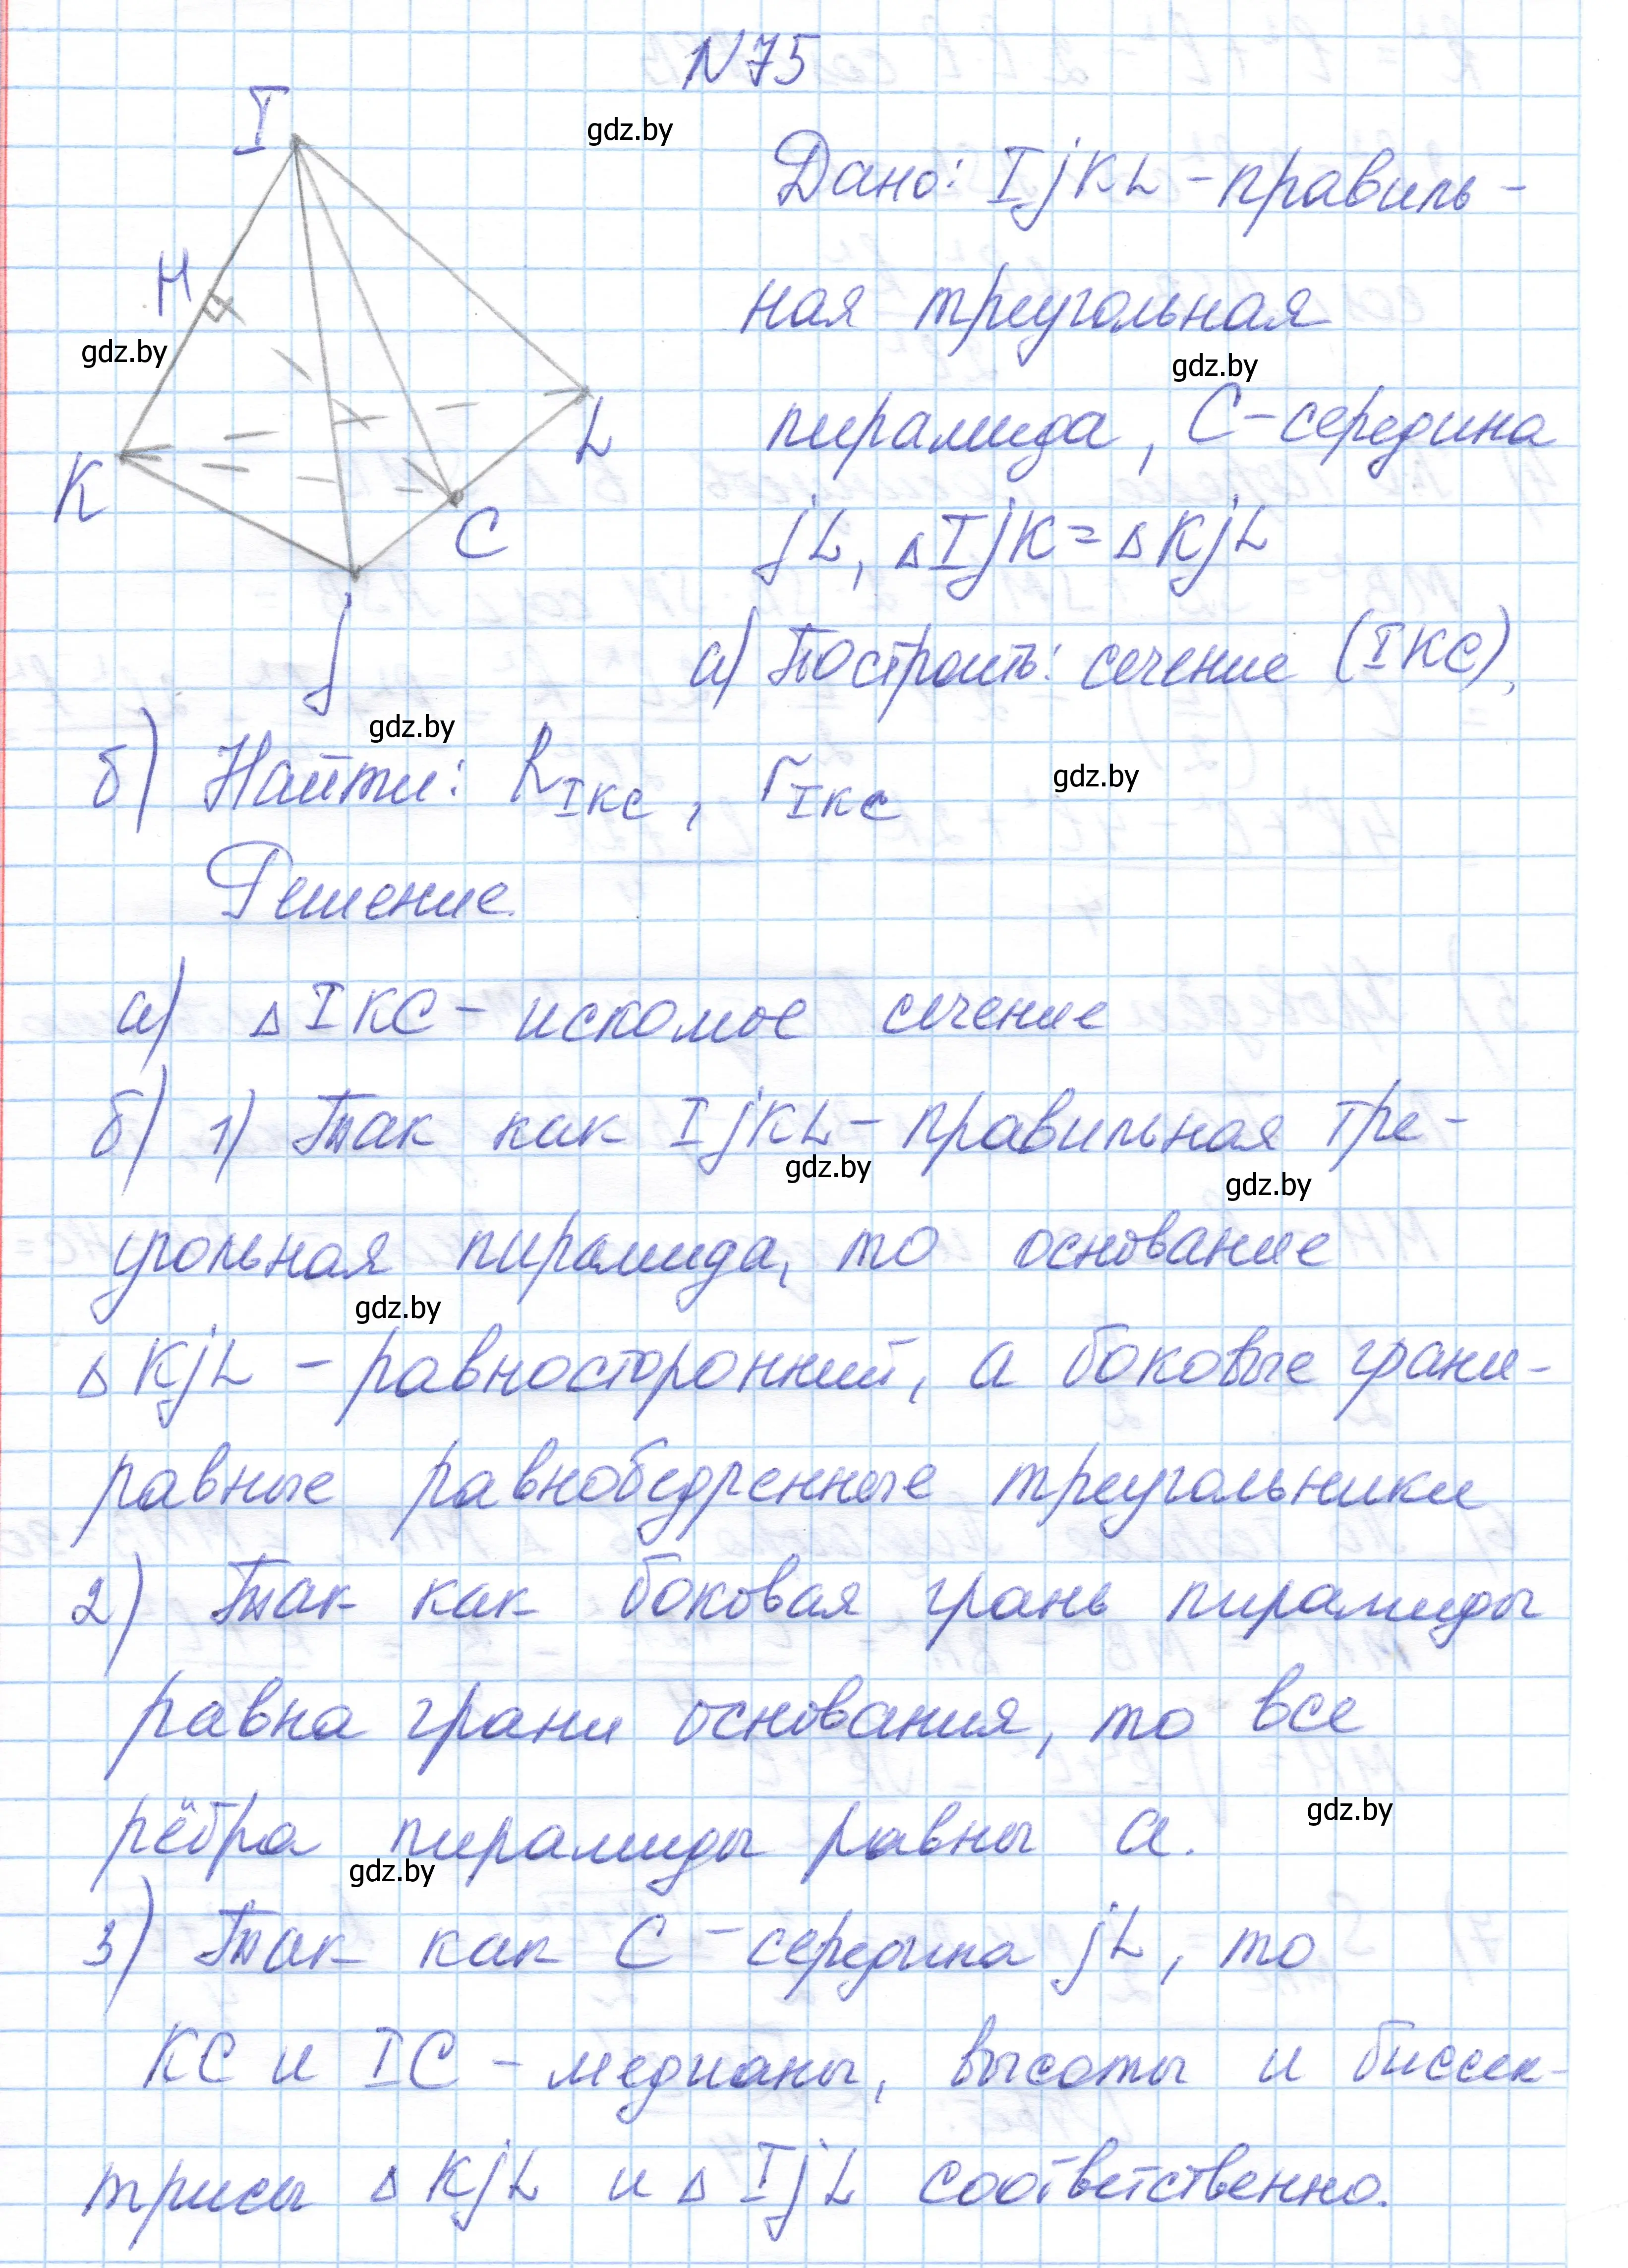 N75
I
gdz.by
Дано: IjKL - правиль-
H
ная треугольная
gdz.by
gdz.by
пирамида, C - середина
L
K
C
jL, △IjK = △KjL
j
а) Построить: сечение (IKC),
gdz.by
б) Найти: R IKC, r IKC
gdz.by
Решение
а) △IKC - искомое сечение
б) 1) Так как IjKL - правильная тре-
gdz.by
gdz.by
угольная пирамида, то основание
gdz.by
△KjL - равносторонний, а боковые грани-
равные равнобедренные треугольники
2) Так как боковая грань пирамиды
равна грани основания, то все
рёбра пирамиды равны a.
gdz.by
gdz.by
3) Так как C - середина jL, то
KC и IC - медианы, высоты и биссек-
трисы △KjL и △IjL соответственно.